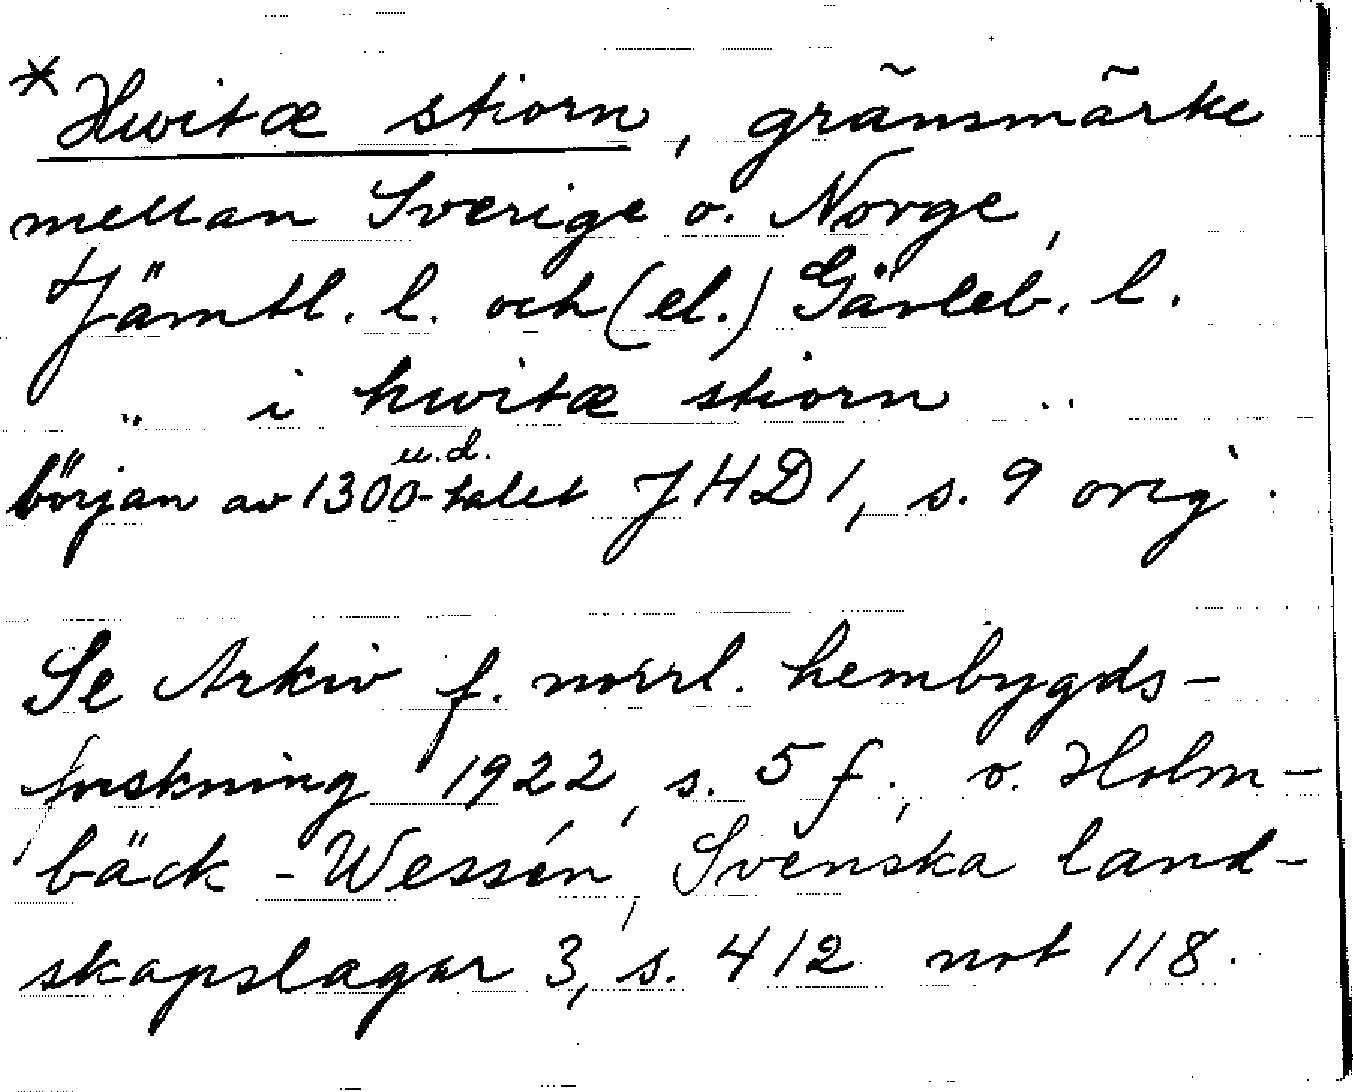 * Hwitæ stiorn, gränsmärke
mellan Sverige o. Norge,
Jämtl. l. och (el.) Gävleb. l.
.. i hwitæ stiorn ..
u.d.
början av 1300-talet JHD 1, s. 9 orig.
Se Arkiv f. norrl. hembygds-
forskning 1922, s. 5 f., o. Holm-
bäck - Wessén, Svenska land-
skapslagar 3, s. 412 not 118.